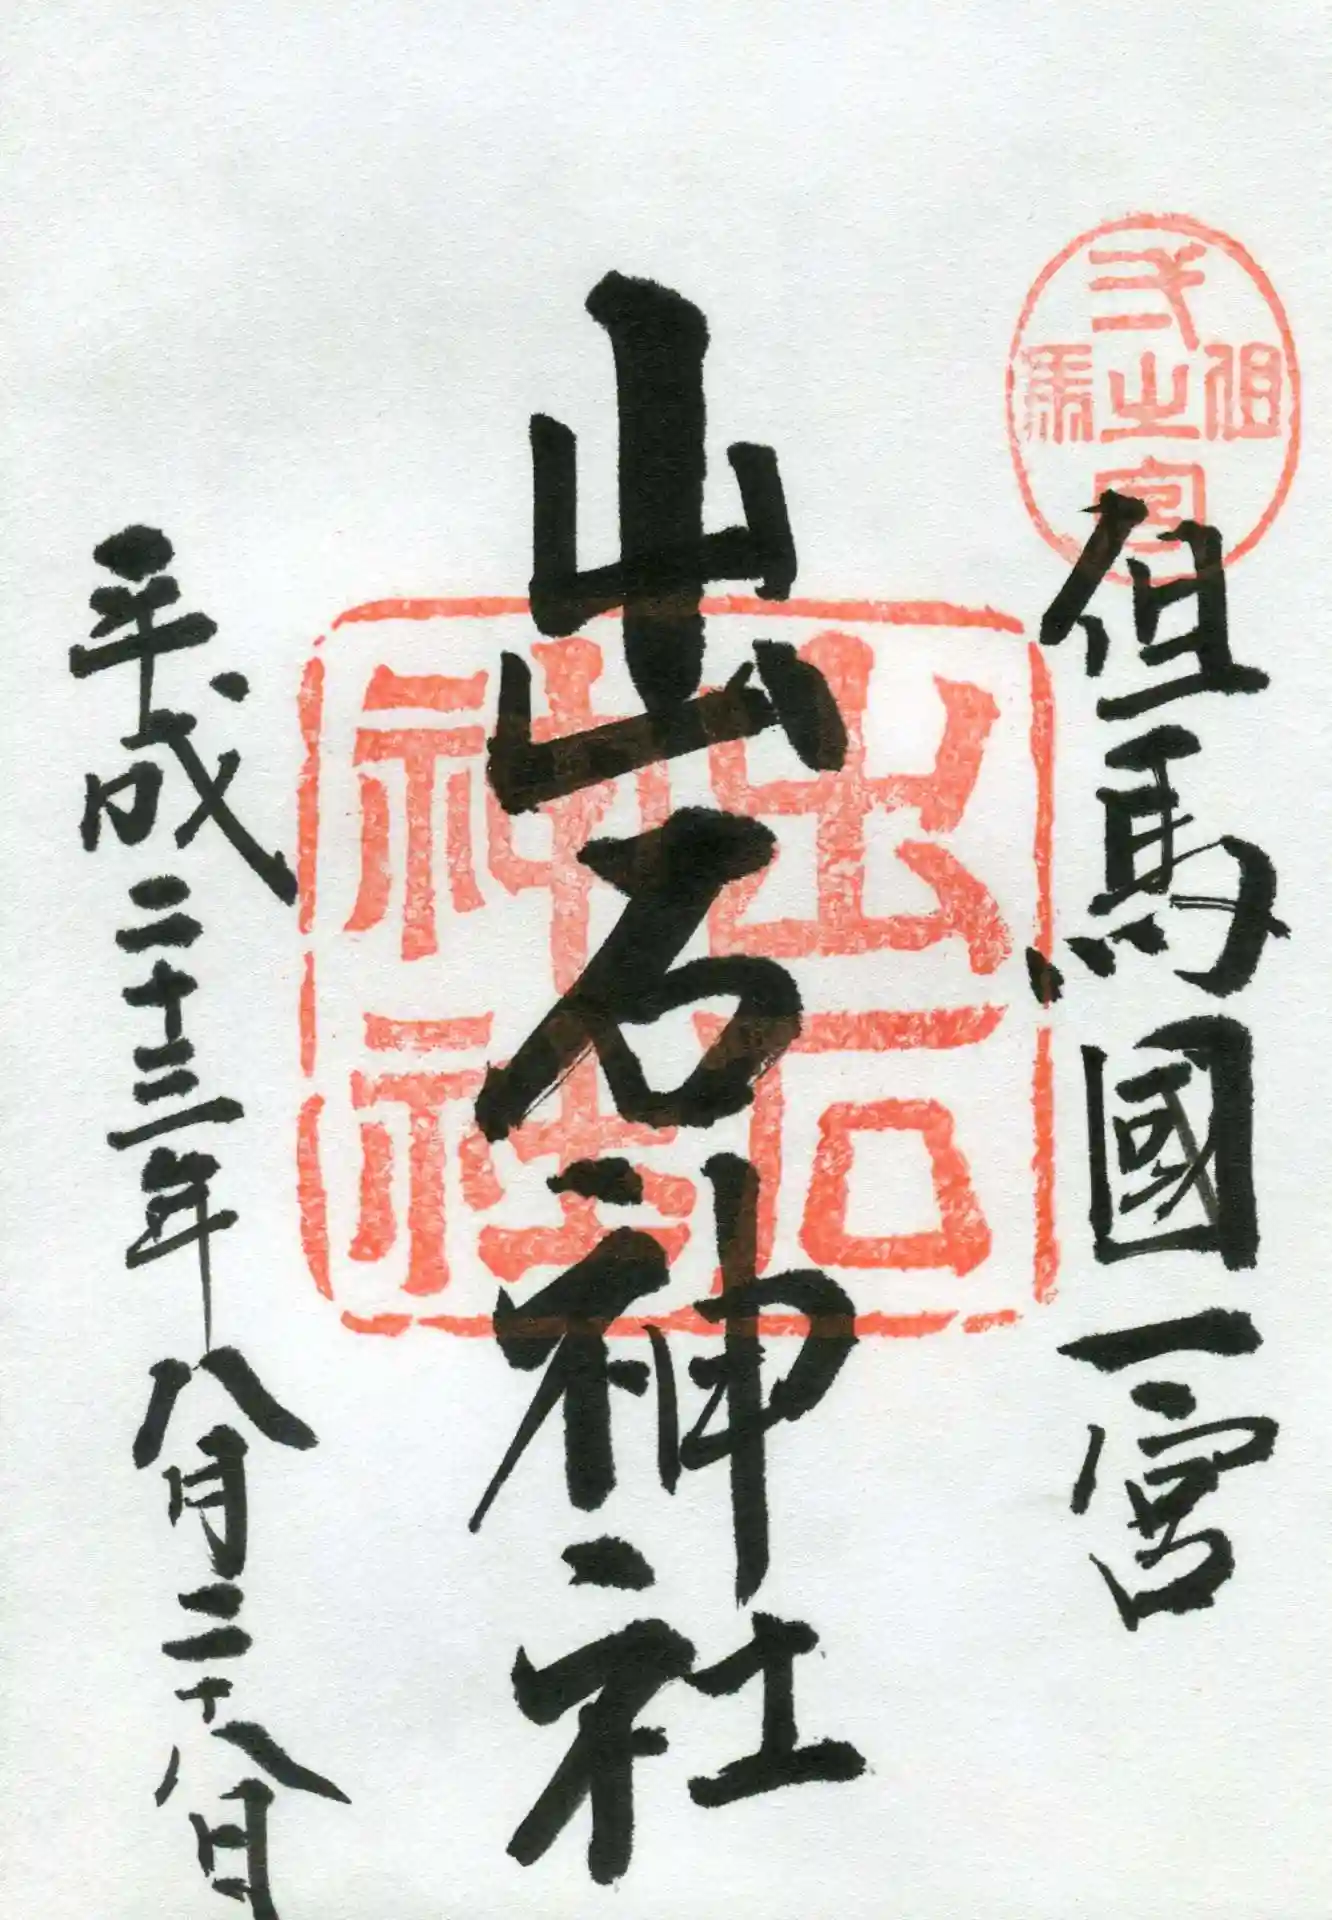 但馬國一宮
出石神社
平成二十三年八月二十八日
弌之宮
但馬
出石
神社